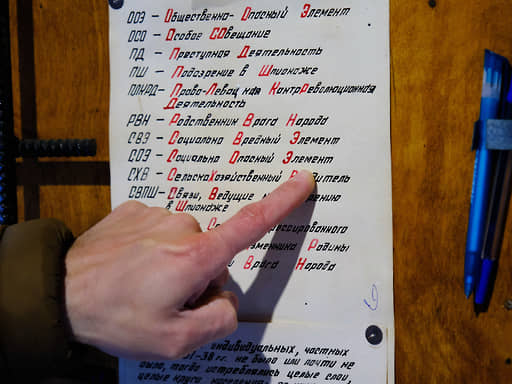 ООЭ – Общественно-Опасный Элемент
ОСО – Особое СОвещание
ПД – Преступная Деятельность
ПШ – Подозрение в Шпионаже
Право-Левацкая КонтрРеволюционная
Деятельность
РВН – Родственник Врага Народа
СВЭ – Социально Вредный Элемент
СОЭ – Социально Опасный Элемент
СХВ – СельскоХозяйственный
СВПШ – Связи, Ведущие
в Шпионаже
Родины
Врага Народа
6
индивидуальных, частных
-38 гг. не было или почти не
было, тогда истреблялись целые слои,
целые круги